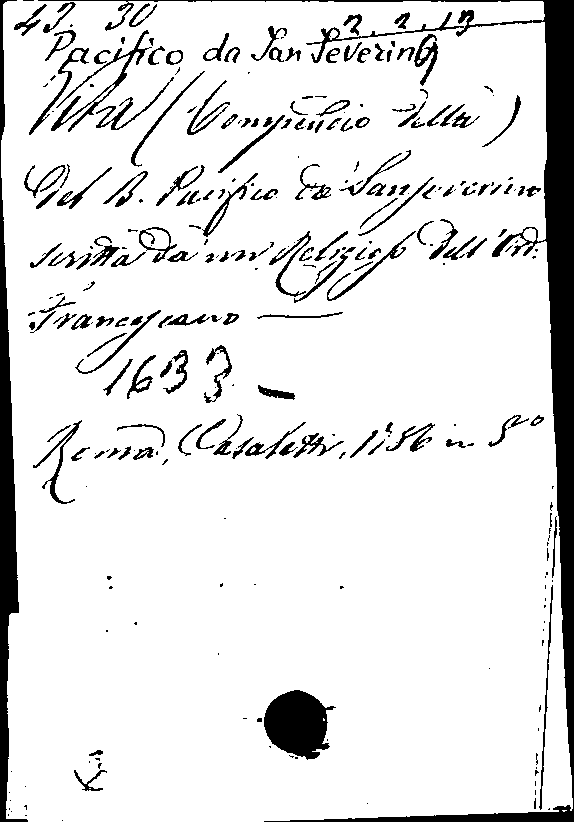 43. 30
2. 2. 13
Pacifico da San Severino
Vita (Compendio della)
del B. Pacifico da Sanseverino
scritta da un Religioso dell'Ord.
Francescano —
1633 —
Roma, Casaletti, 1786 in 8°